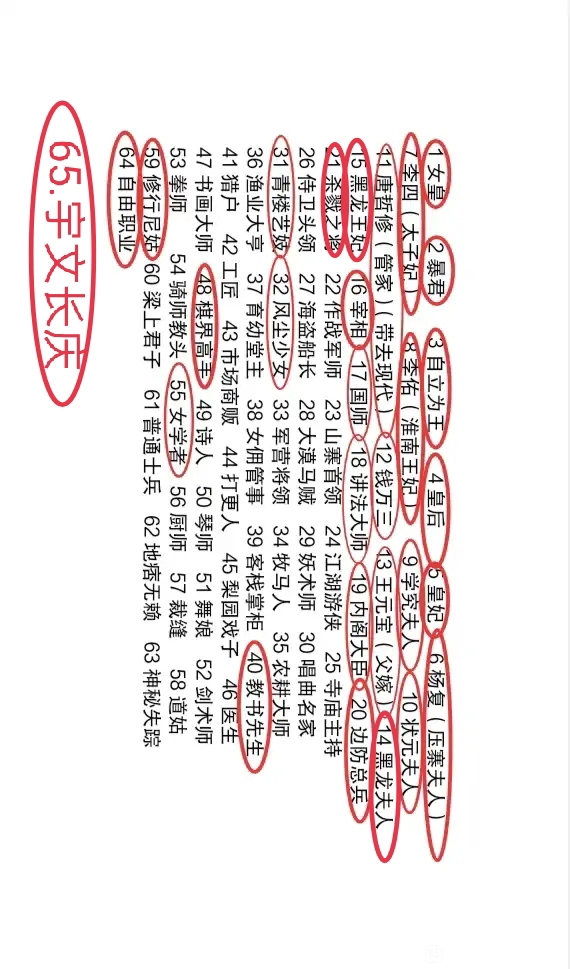 1 女皇 2 暴君 3 自立为王 4 皇后 5 皇妃 6 杨复（压寨夫人）
7 李四（太子妃） 8 李佑（淮南王妃） 9 学究夫人 10 状元夫人
11 唐哲修（管家）（带去现代） 12 钱万三 13 王元宝（父嫁） 14 黑龙夫人
15 黑龙王妃 16 宰相 17 国师 18 讲法大师 19 内阁大臣 20 边防总兵
21 杀戮之 22 作战军师 23 山寨首领 24 江湖游侠 25 寺庙主持
26 侍卫头领 27 海盗船长 28 大漠马贼 29 妖术师 30 唱曲名家
31 青楼艺妓 32 风尘少女 33 军营将领 34 牧马人 35 农耕大师
36 渔业大亨 37 育幼堂主 38 女佣管事 39 客栈掌柜 40 教书先生
41 猎户 42 工匠 43 市场商贩 44 打更人 45 梨园戏子 46 医生
47 书画大师 48 棋界高手 49 诗人 50 琴师 51 舞娘 52 剑术师
53 拳师 54 骑师教头 55 女学者 56 厨师 57 裁缝 58 道姑
59 修行尼姑 60 梁上君子 61 普通士兵 62 地痞无赖 63 神秘失踪
64 自由职业
65.宇文长庆